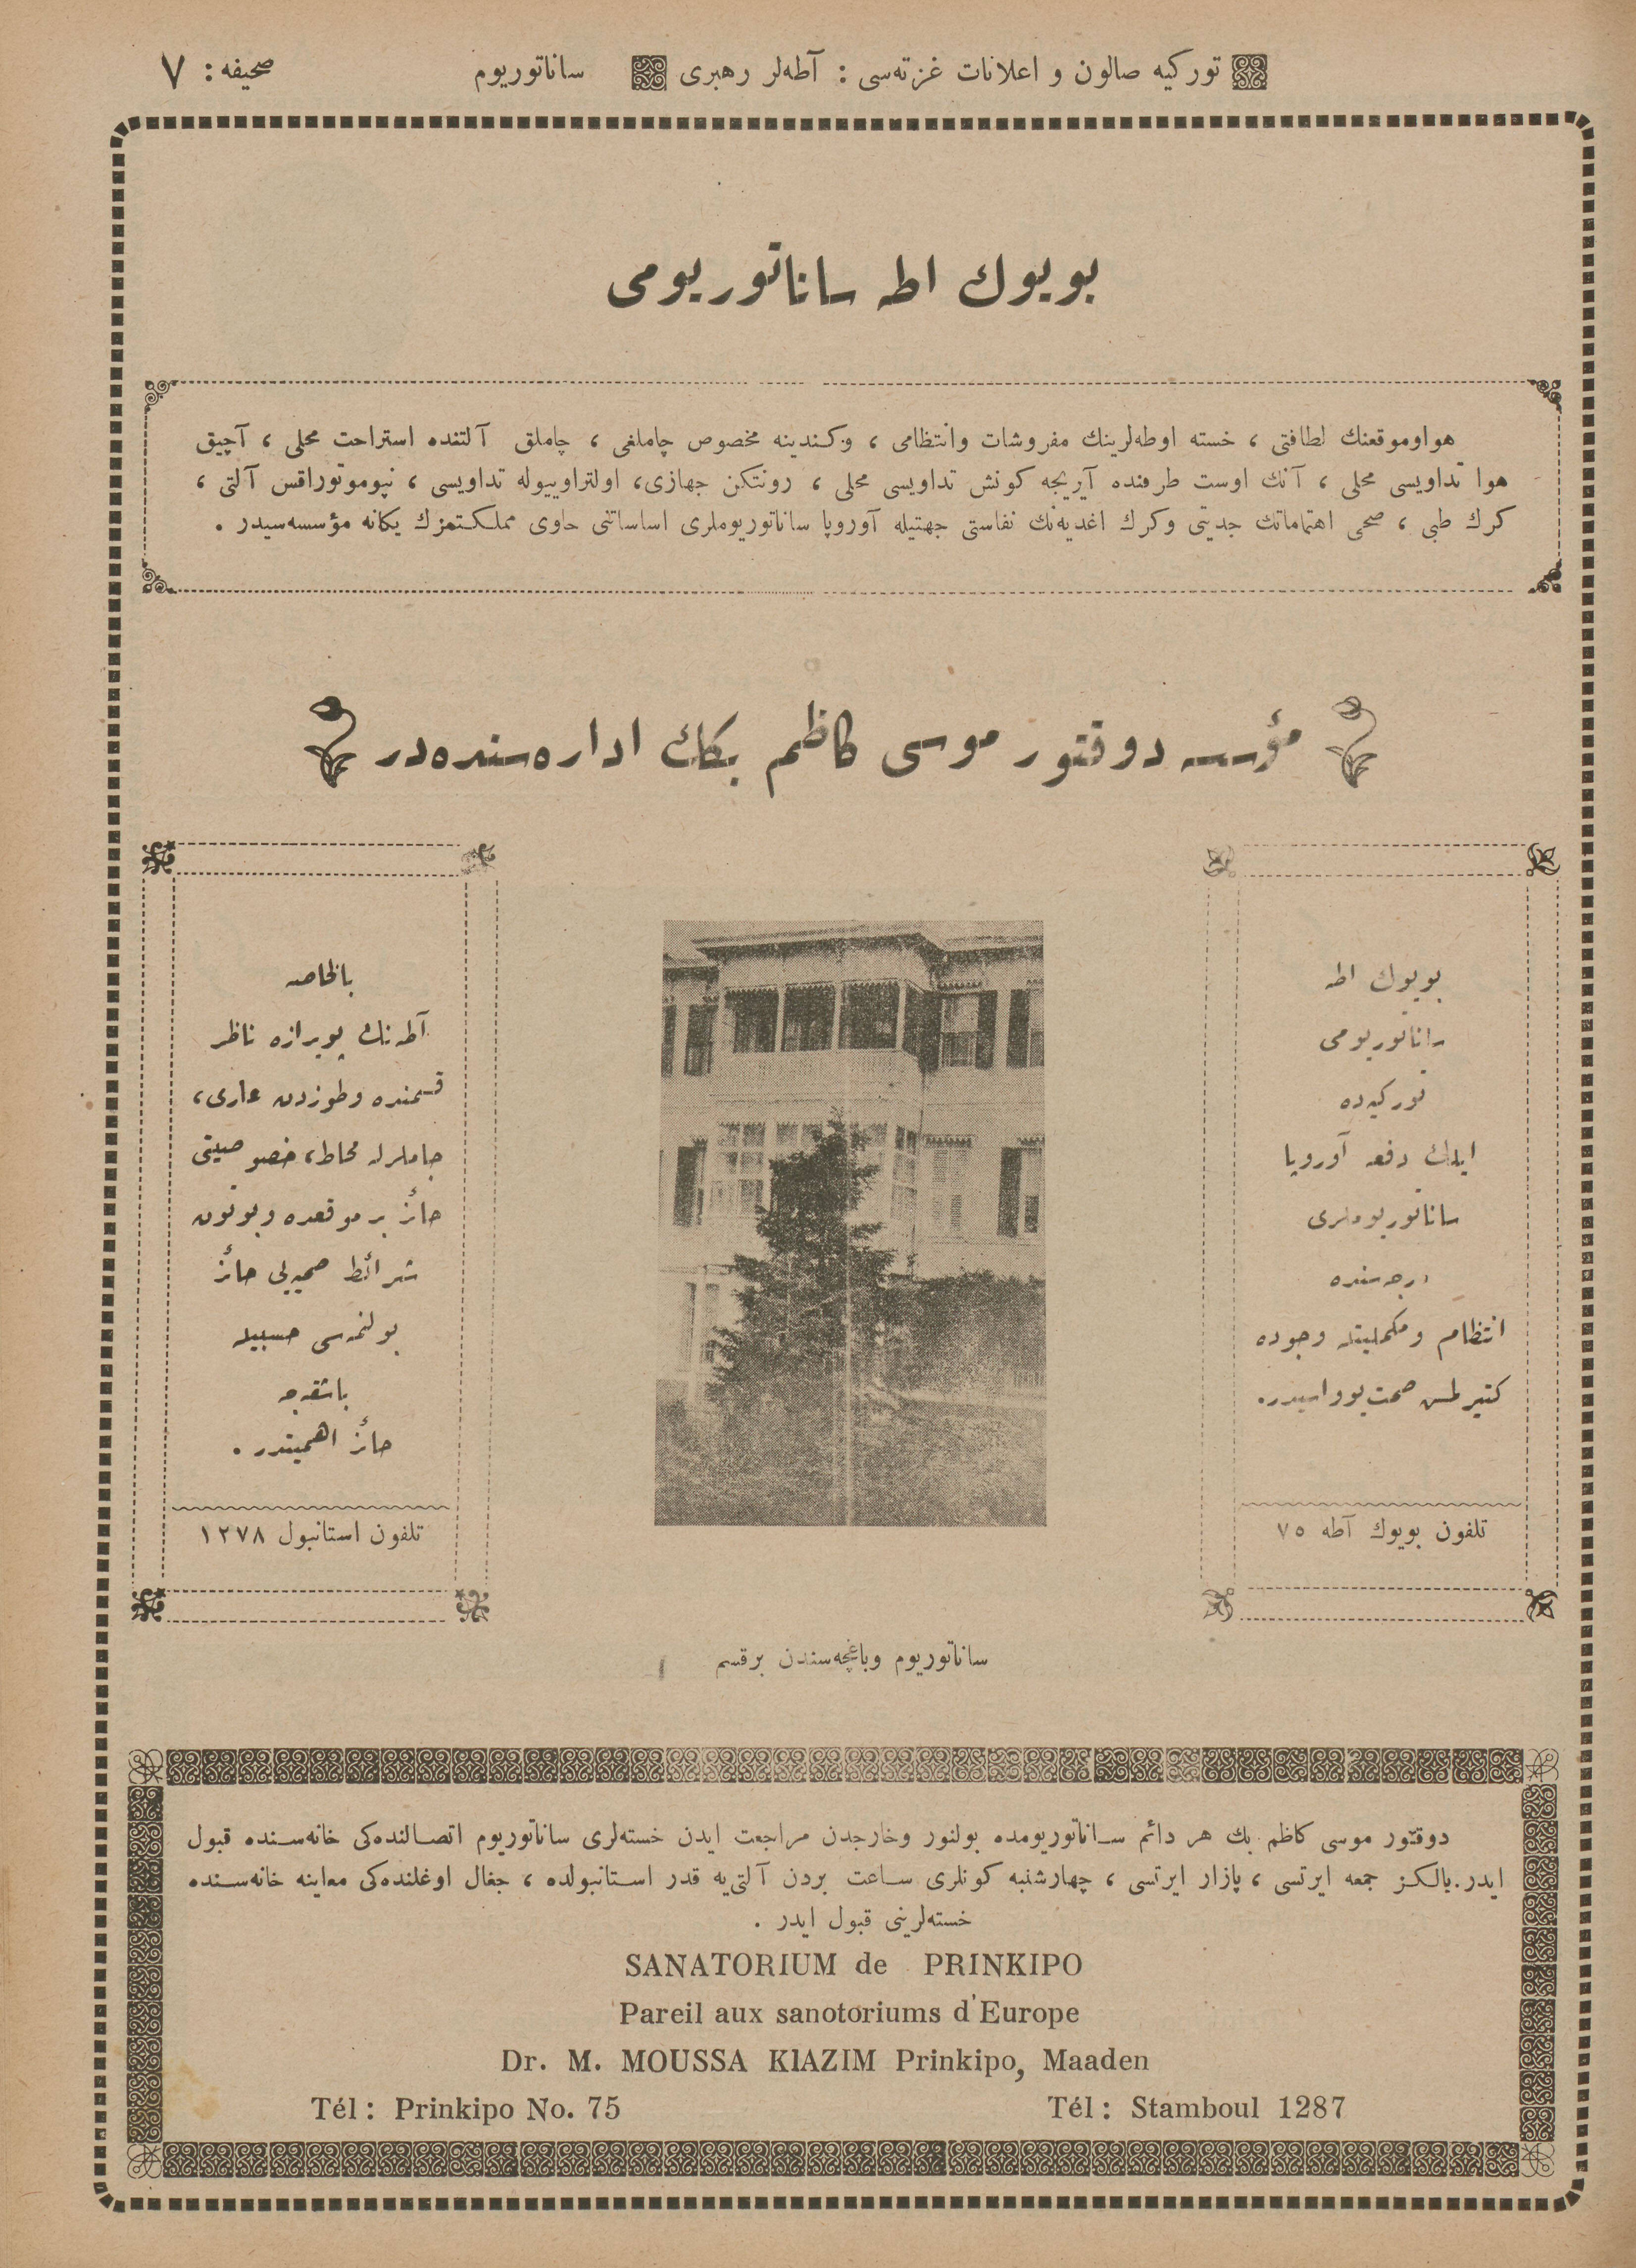 توركيه صالون و اعلانات غزته‌سی : آطه‌لر رهبری ساناتوريوم صحيفه : ٧
بويوك اطه ساناتوريومی
هواوموقعنك لطافتی ، خسته اوطه‌لرينك مفروشات وانتظامی ، وكندينه مخصوص چاملغی ، چاملق آلتنده استراحت محلی ، آچيق
هوا تداويسی محلی ، آنك اوست طرفنده آيريجه كونش تداويسی محلی ، رونتكن جهازی، اولتراوييوله تداويسی ، نپوموتوراقس آلتی ،
كرك طبی ، صحی اهتماماتك جديتی وكرك اغديه‌نك نفاستی جهتيله آوروپا ساناتوريوملری اساساتنی حاوی مملكتمزك يكانه مؤسسه‌سيدر .
مؤسسه دوقتور موسی كاظم بكك اداره‌سنده‌در
بويوك اطه
ساناتوريومی
توركيه‌ده
ايلك دفعه آوروپا
ساناتوريوملری
درجه‌سنده
انتظام ومكمليتله وجوده
كتيرلمش صحت يوواسيدر.
تلفون بويوك آطه ٧٥
بالخاصه
آطه‌نك پويرازه ناظر
قسمنده وطوزدن عاری،
چاملرله محاط، خصوصيتی
حائز بر موقعده وبوتون
شرائط صحيه‌يی حائز
بولنمه‌سی حسبيله
باشقه‌جه
حائز اهميتدر .
تلفون استانبول ١٢٧٨
ساناتوريوم وباغچه‌سندن برقسم
دوقتور موسی كاظم بك هر دائم ساناتوريومده بولنور وخارجدن مراجعت ايدن خسته‌لری ساناتوريوم اتصالنده‌كی خانه‌سنده قبول
ايدر. يالكز جمعه ايرتسی ، پازار ايرتسی ، چهارشنبه كونلری ساعت بردن آلتی‌يه قدر استانبولده ، جغال اوغلنده‌كی معاينه خانه‌سنده
خسته‌لرينی قبول ايدر .
SANATORIUM de PRINKIPO
Pareil aux sanotoriums d'Europe
Dr. M. MOUSSA KIAZIM Prinkipo, Maaden
Tél : Prinkipo No. 75 Tél : Stamboul 1287